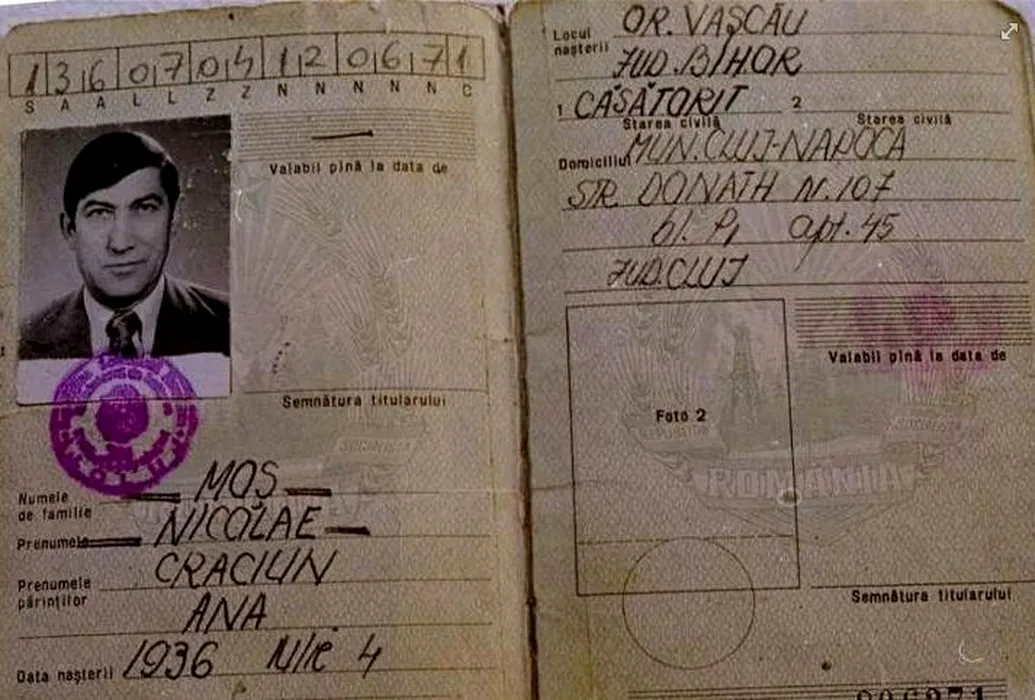 1 3 6 0 7 0 4 1 2 0 6 7 1
S A A L L Z Z N N N N N C
Valabil pînă la data de
Semnătura titularului
Numele
de familie MOȘ
Prenumele NICOLAE
Prenumele
părinților CRACIUN
ANA
Data nașterii 1936 4
Locul
nașterii OR. VAȘCĂU
JUD. BIHOR
1 CĂSĂTORIT 2
Starea civilă Starea civilă
Domiciliul MUN. CLUJ-NAPOCA
STR DONATH Nr. 107
bl. P1 apt. 45
JUD. CLUJ
Foto 2
Valabil pînă la data de
REPUBLICA SOCIALISTĂ
ROMÂNIA
Semnătura titularului